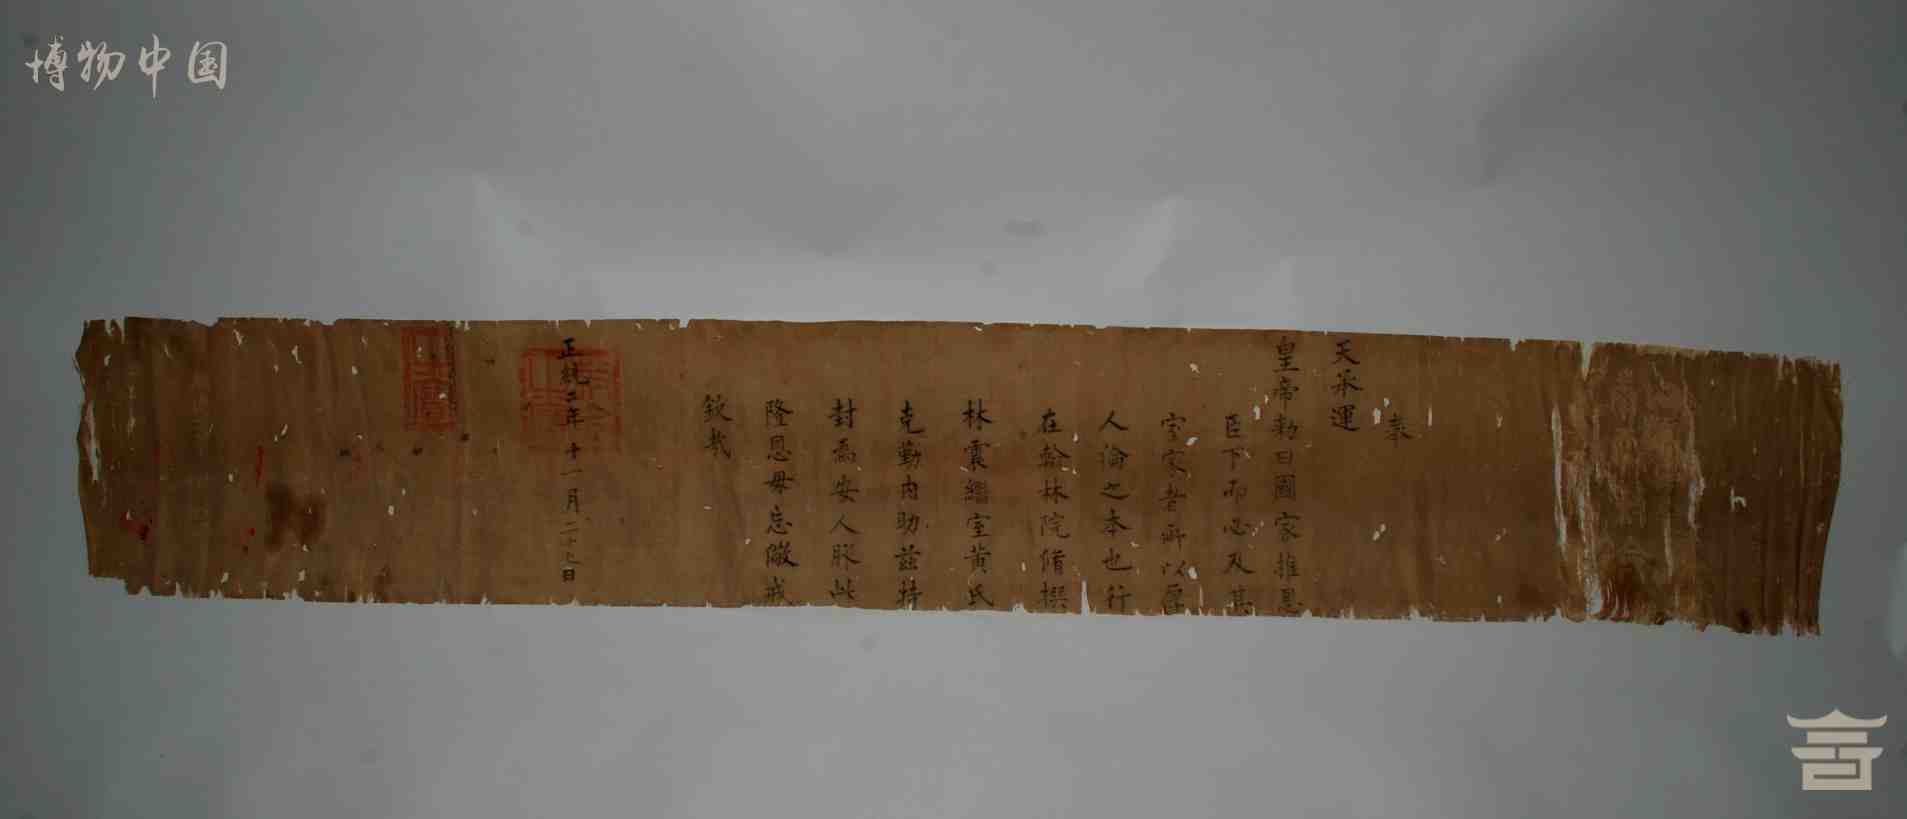 博物中国
奉
天承運
皇帝勑曰國家推恩
臣下而必及其
室家者所以厚
人倫之本也行
在翰林院脩撰
林震繼室黄氏
克勤内助兹特
封爲安人服此
隆恩毋忘儆戒
欽哉
正統二年十一月二十七日